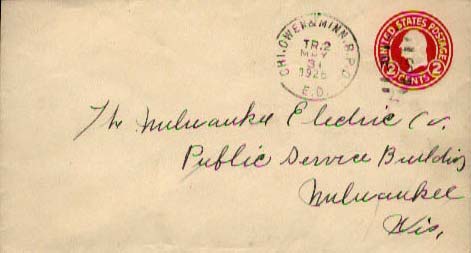 CHI. OWEN & MINN. R.P.O.
TR.2
MAY
31
1926
E.D.
UNITED STATES POSTAGE
2 CENTS 2
The Milwaukee Electric Co.
Public Service Building
Milwaukee
Wis.